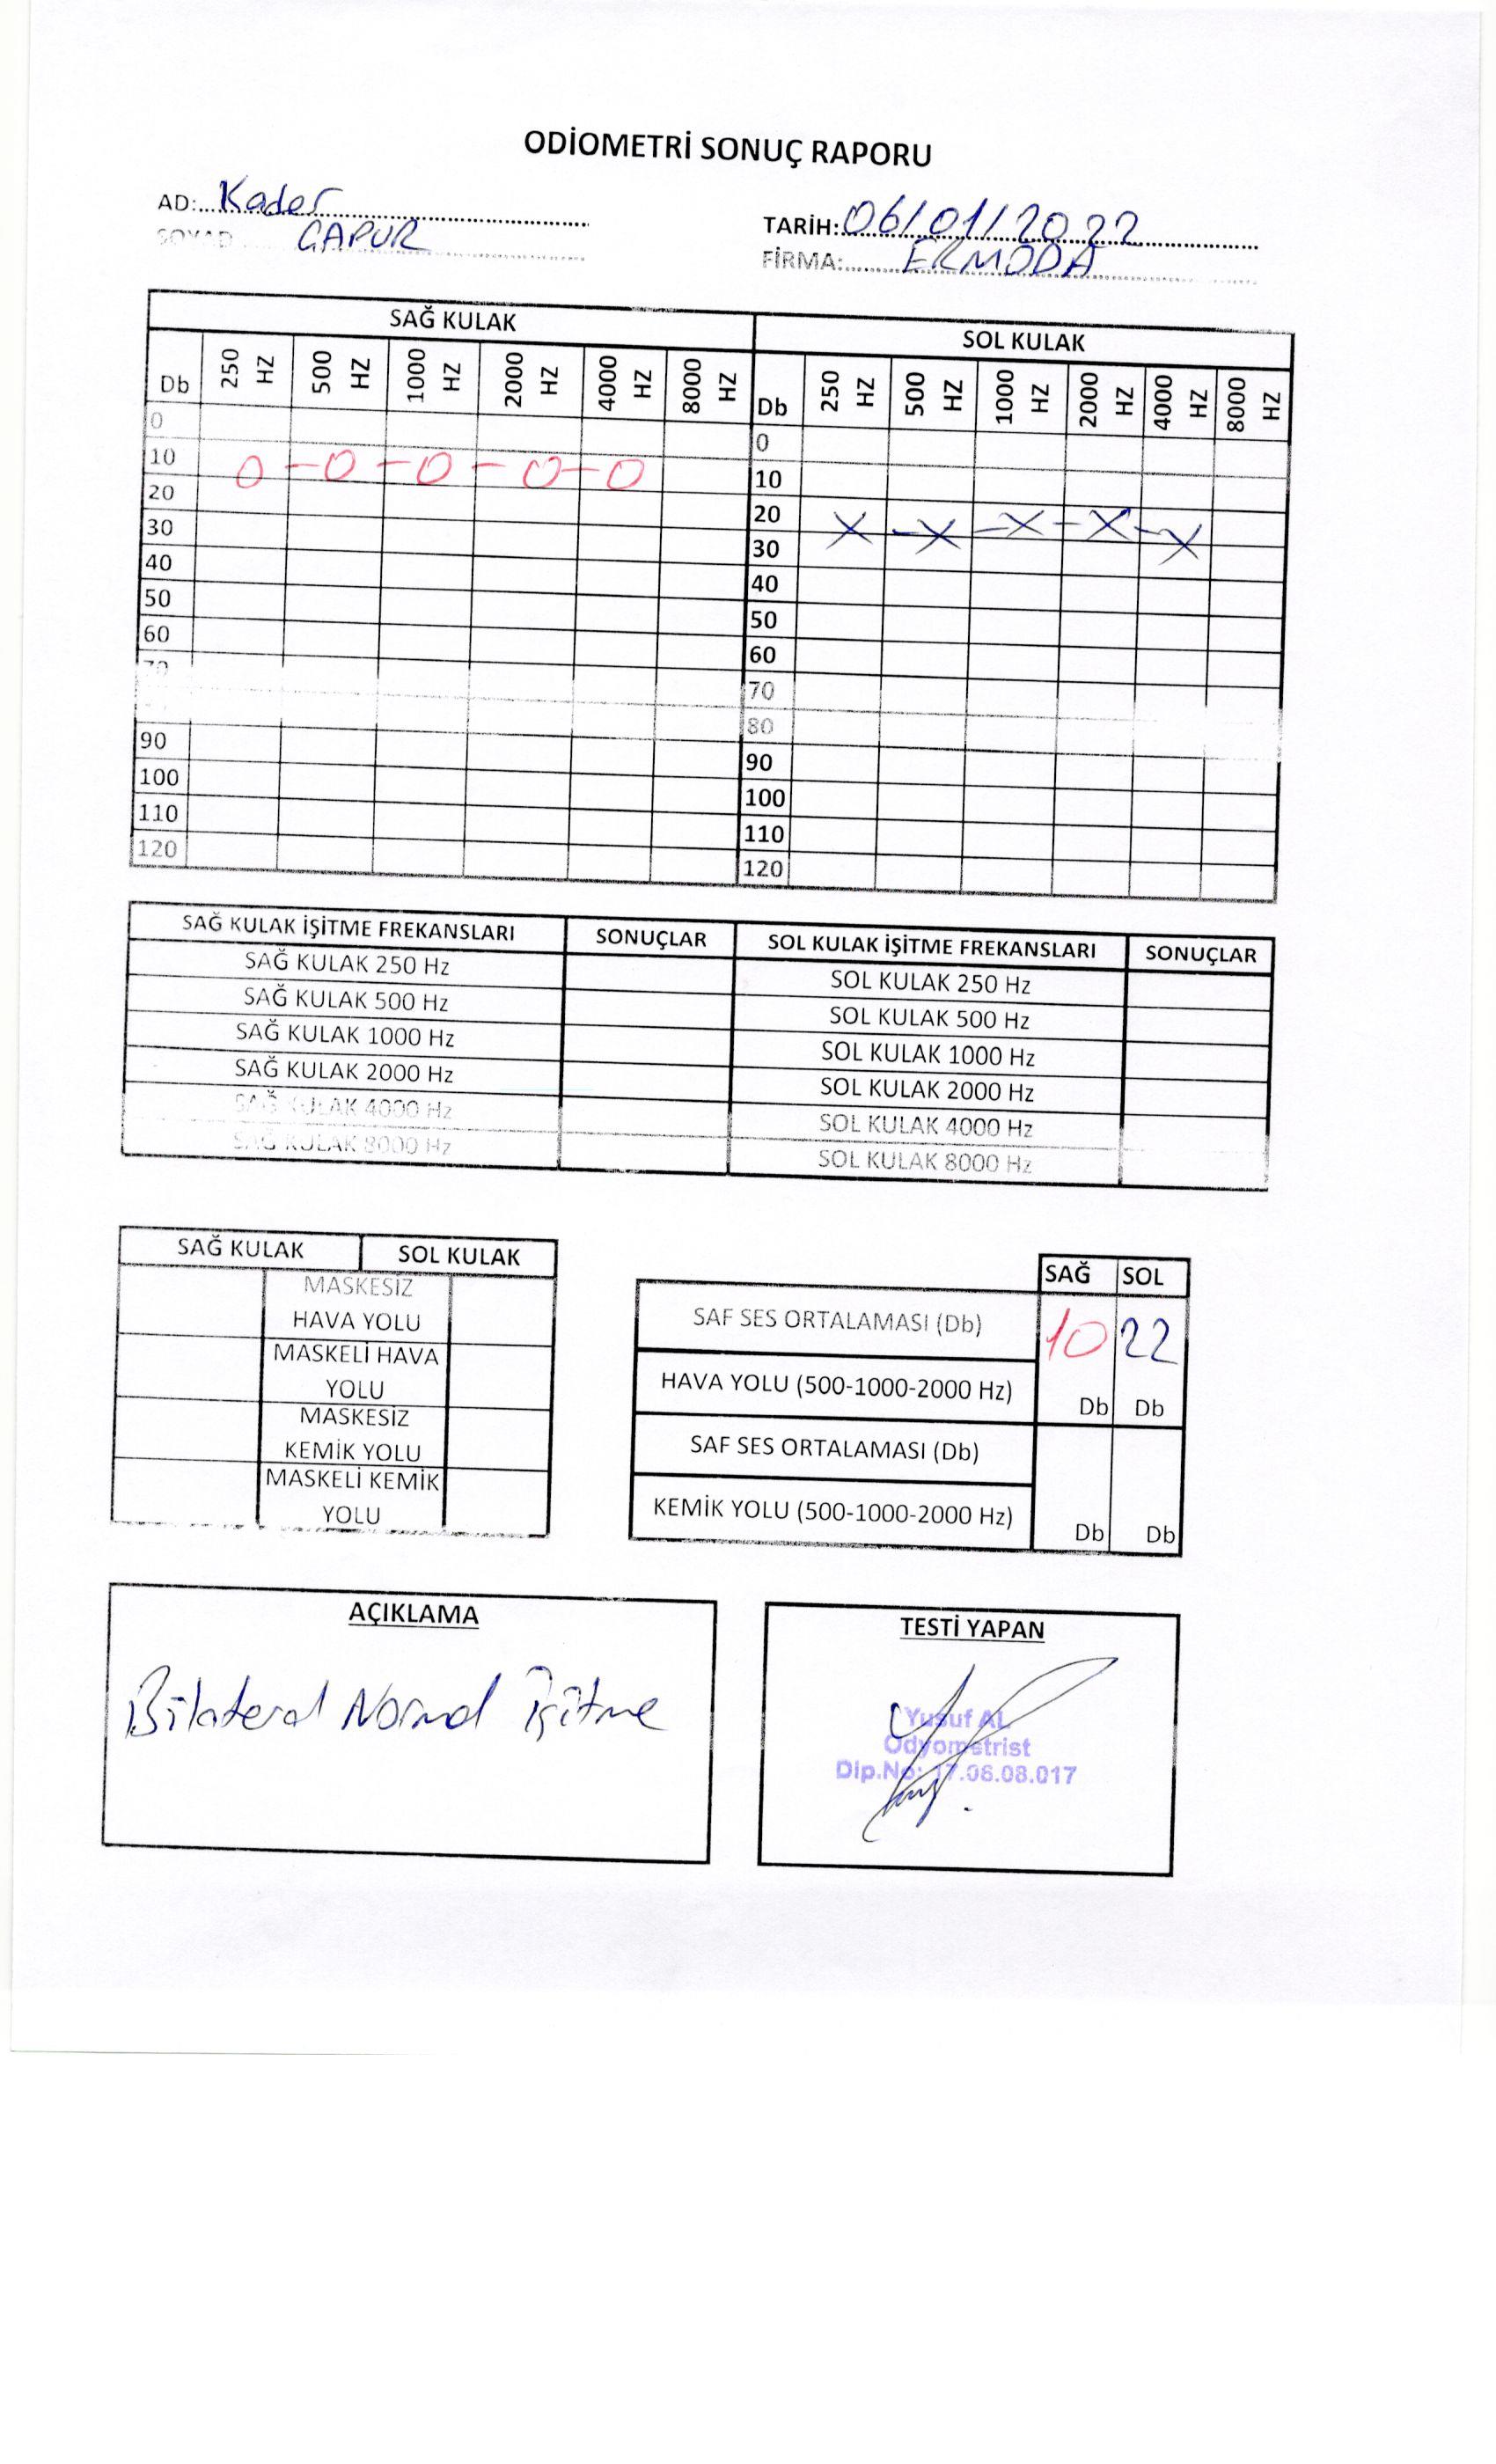 ODİOMETRİ SONUÇ RAPORU
AD: Kader
SOYAD GAPUR
TARİH: 06/01/2022
FİRMA: ERMODA
SAĞ KULAK SOL KULAK
Db 250 HZ 500 HZ 1000 HZ 2000 HZ 4000 HZ 8000 HZ Db 250 HZ 500 HZ 1000 HZ 2000 HZ 4000 HZ 8000 HZ
0 0
10 O-O-O-O-O 10
20 20 X-X-X-X-X
30 30
40 40
50 50
60 60
70 70
80
90 90
100 100
110 110
120 120
SAĞ KULAK İŞİTME FREKANSLARI SONUÇLAR SOL KULAK İŞİTME FREKANSLARI SONUÇLAR
SAĞ KULAK 250 Hz SOL KULAK 250 Hz
SAĞ KULAK 500 Hz SOL KULAK 500 Hz
SAĞ KULAK 1000 Hz SOL KULAK 1000 Hz
SAĞ KULAK 2000 Hz SOL KULAK 2000 Hz
SAĞ KULAK 4000 Hz SOL KULAK 4000 Hz
SAĞ KULAK 8000 Hz SOL KULAK 8000 Hz
SAĞ KULAK SOL KULAK
MASKESİZ
HAVA YOLU
MASKELİ HAVA
YOLU
MASKESİZ
KEMİK YOLU
MASKELİ KEMİK
YOLU
SAĞ SOL
SAF SES ORTALAMASI (Db) 10 22
HAVA YOLU (500-1000-2000 Hz) Db Db
SAF SES ORTALAMASI (Db)
KEMİK YOLU (500-1000-2000 Hz) Db Db
AÇIKLAMA
Bilateral Normal İşitme
TESTİ YAPAN
Yusuf AL
Odyometrist
Dip.No: 17.06.08.017